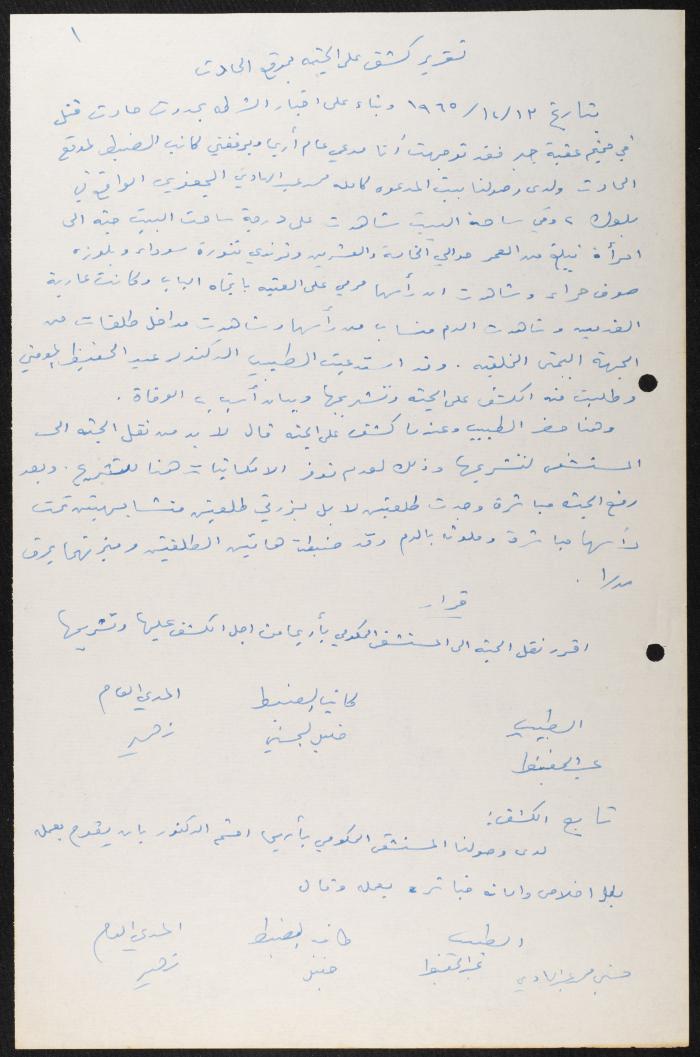 ١
تقرير كشف على الجثه بموقع الحادث
بتاريخ ١٩٦٥/١٢/١٣ وبناء على اخبار الشرطه بحدوث حادث قتل
في مخيم عقبة جبر فقد توجهت أنا مدعي عام أريحا وبرفقتي كاتب الضبط لموقع
الحادث ولدى وصولنا بيت المدعوه كامله محمد عبد الهادي اليعفوري الواقع في
بلوك ٢ وفي ساحة البيت شاهدت على درجة ساحت البيت جثه الى
امرأة تبلغ من العمر حوالي الخامسة والعشرين وترتدي تنورة سوداء وبلوزه
صوف حمراء وشاهدت ان رأسها مرمي على العتبه باتجاه الباب وكانت عارية
القدمين وشاهدت الدم منساب من رأسها وشاهدت مداخل طلقات من
الجهة اليمنى الخلفيه . وقد استدعيت الطبيب الدكتور عبد الحفيظ
وطلبت منه الكشف على الجثه وتشريحها وبيان أسباب الوفاة .
وهنا حضر الطبيب وعندما كشف على الجثه قال لا بد من نقل الجثه الى
المستشفى لتشريحها وذلك لعدم توفر الامكانيات هنا للتشريح . وبعد
رفع الجثه مباشرة وجدت طلقتين لا بل بزرتي طلقتين متشابهتين تحت
رأسها مباشرة وملوثه بالدم وقد ضبطت هاتين الطلقتين وميزتهما بحرف
قرار
اقرر نقل الجثه الى المستشفى الحكومي بأريحا من اجل الكشف عليها وتشريحها
الطبيب كاتب الضبط المدعي العام
عبد الحفيظ خليل زهير
تابع الكشف :
لدى وصولنا المستشفى الحكومي بأريحا اقسم الدكتور بان يقوم بعمله
بكل اخلاص وامانه فباشر بعمله وقال
الطبيب كاتب الضبط المدعي العام
محمد عبد الهادي عبد الحفيظ خليل زهير